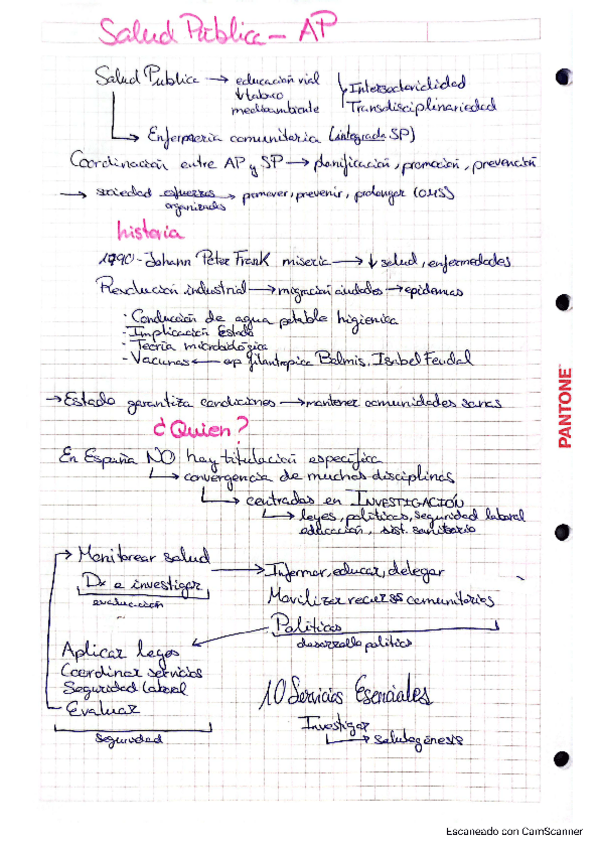 Salud Pública - AP
Salud Publica → educación vial
↓ tabaco
medioambiente
Intersectorialidad
Transdisciplinariedad
↳ Enfermería comunitaria (integrada SP)
Coordinación entre AP y SP → planificación, promoción, prevención
→ sociedad esfuerzos organizados → promover, prevenir, prolongar (OMS)
historia
1790 - Johann Peter Frank miseria → ↓ salud, enfermedades
Revolución industrial → migración ciudades → epidemias
· Conducción de agua potable higienica
- Implicación Estado
· Teoría microbiológica
- Vacunas ← filantropica Balmis, Isabel
→ Estado garantiza condiciones → mantener comunidades sanas
¿Quien?
En España NO hay titulación específica
↳ convergencia de muchas disciplinas
↳ centradas en INVESTIGACIÓN
↳ leyes, políticas, seguridad laboral
educación, sist. sanitario
Monitorear salud
Dx e investigar
evaluación
Informar, educar, delegar
Movilizar recursos comunitarios
Políticas
desarrollo político
Aplicar leyes
Coordinar servicios
Seguridad laboral
Evaluar
seguridad
10 Servicios Esenciales
Investigar
↳ Salutogénesis
PANTONE
Escaneado con CamScanner